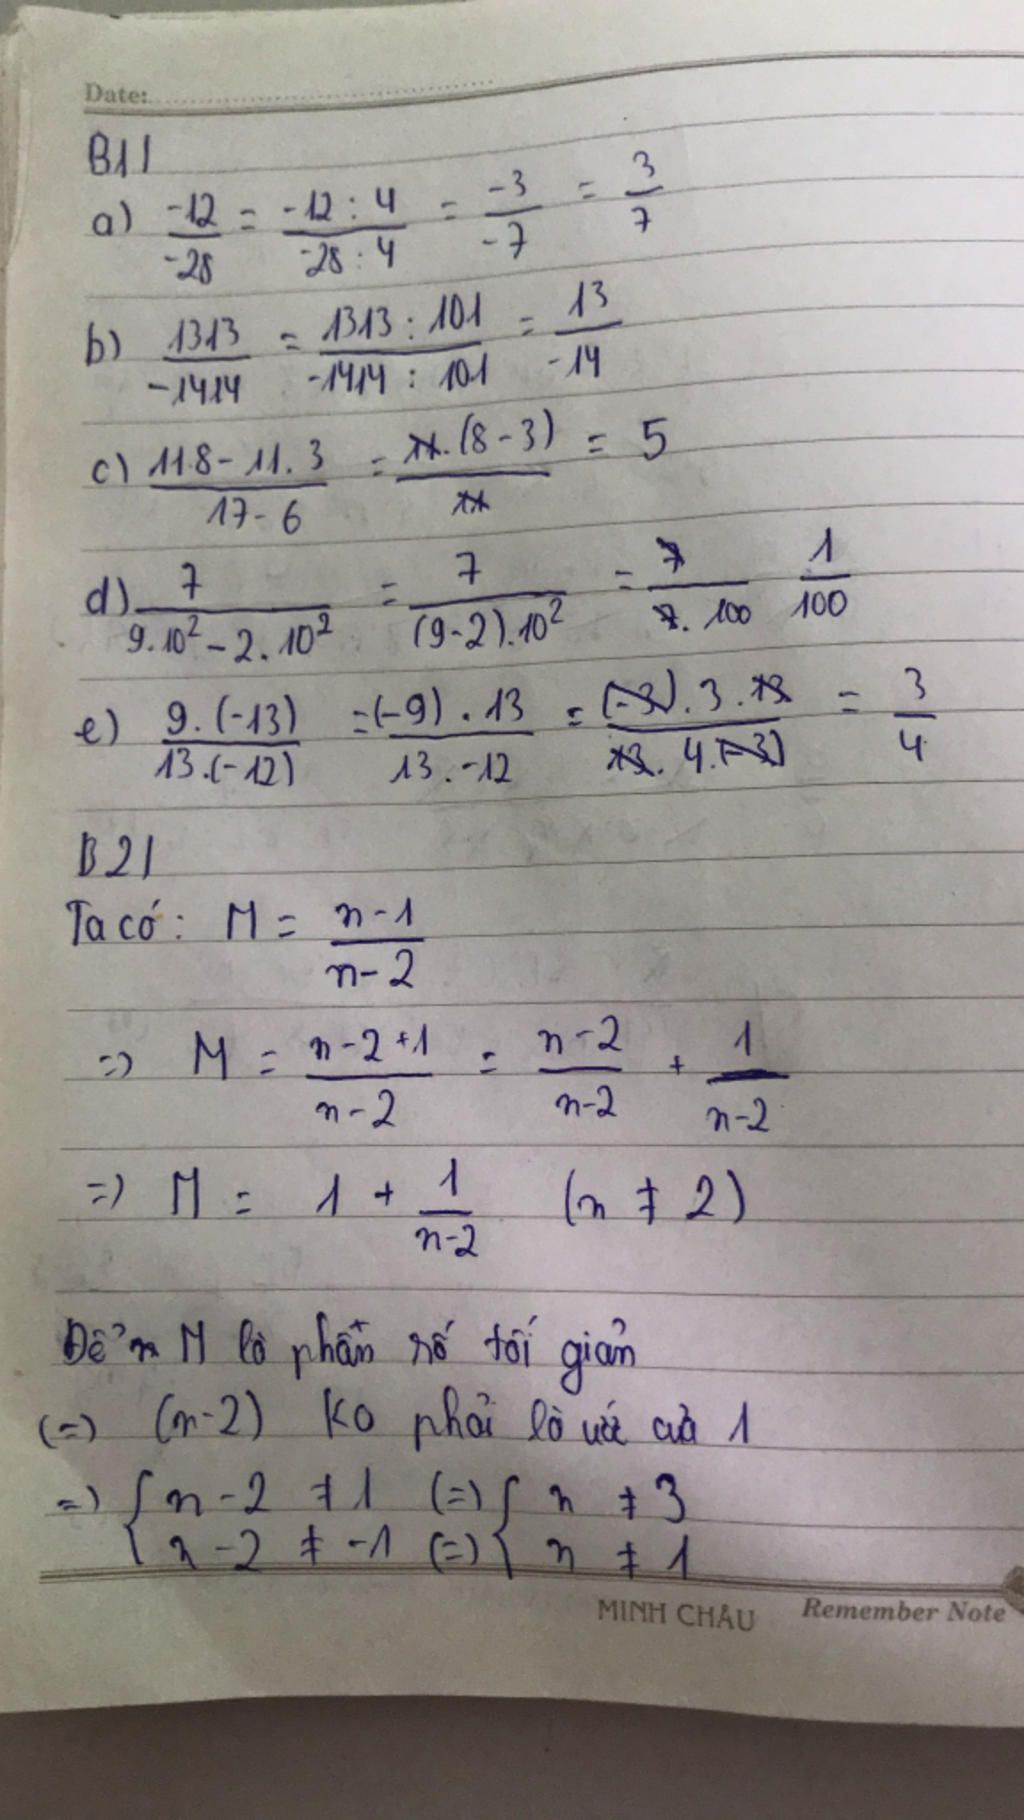 Date:
B1/
a) -12/-28 = -12 : 4/-28 : 4 = -3/-7 = 3/7
b) 1313/-1414 = 1313 : 101/-1414 : 101 = 13/-14
c) 11.8 - 11.3/17 - 6 = 11.(8 - 3)/11 = 5
d) 7/9.10² - 2.10² = 7/(9-2).10² = 7/7.100 1/100
e) 9.(-13)/13.(-12) = (-9).13/13.-12 = (-3).3.13/13.4.(-3) = 3/4
B2/
Ta có: M = n-1/n-2
=> M = n-2+1/n-2 = n-2/n-2 + 1/n-2
=> M = 1 + 1/n-2 (n ≠ 2)
Để M là phân số tối giản
(=) (n-2) ko phải là ước của 1
=> { n-2 ≠ 1 (=) { n ≠ 3
n-2 ≠ -1 (=) n ≠ 1
MINH CHÂU Remember Note